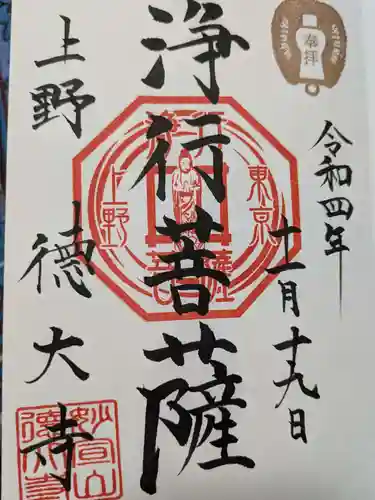 奉拝
令和四年
十一月十九日
浄行菩薩
上野
徳大寺
浄行
東京
上野
菩薩